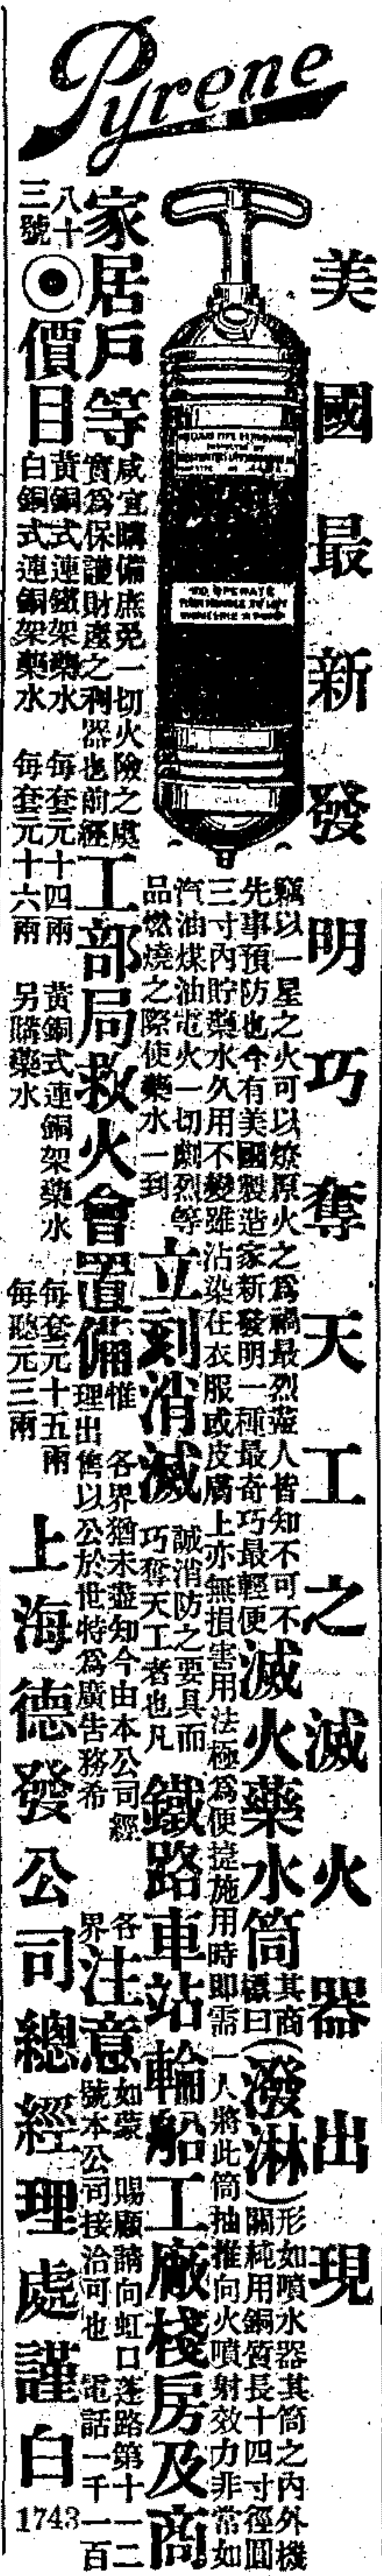 Pyrene
美國最新發明巧奪天工之滅火器出現
竊以一星之火可以燎原火之爲禍最烈盡人皆知不可不
先事預防也今有美國製造家新發明一種最奇巧最輕便
滅火藥水筒
其商
標曰
(潑淋)
形如噴水器其筒之內外機
關純用銅質長十四寸徑圓
三寸內貯藥水久用不變雖沾染在衣服或皮膚上亦無損害用法極爲便捷施用時即需一人將此筒抽推向火噴射效力非常如
汽油煤油電火一切劇烈等
品燃燒之際使藥水一到
立刻消滅
誠消防之要具而
巧奪天工者也凡
鐵路車站輪船工廠棧房及商
家居戶等
咸宜購備庶免一切火險之虞
實爲保護財產之利器也前經
工部局救火會置備
惟各界猶未盡知今由本公司經
理出售以公於世特爲廣告務希
各
界
注意
如蒙賜顧請向虹口蓬路第十一二
號本公司接洽可也電話一千一百
八十
三號
◉價目
黃銅式連鐵架藥水 每套元十四兩
白銅式連銅架藥水 每套元十六兩
黃銅式連銅架藥水 每套元十五兩
另購藥水 每聽元三兩
上海德發公司總經理處謹白
1743